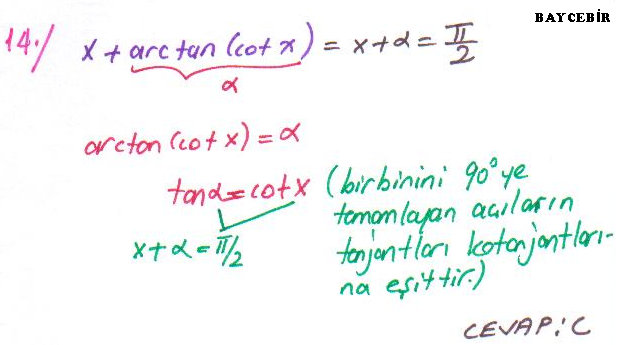 BAYCEBİR
14./ x + arctan(cot x) = x + α = π/2
α
arctan(cot x) = α
tanα = cot x (birbinini 90° ye
tamamlayan açıların
x + α = π/2 tanjantları kotanjantları-
na eşittir.)
CEVAP: C